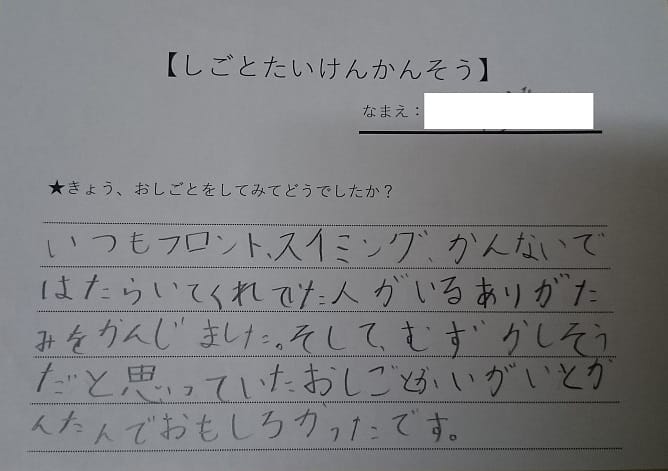 【しごとたいけんかんそう】
なまえ：
★きょう、おしごとをしてみてどうでしたか？
いつもフロント、スイミング、かんないで
はたらいてくれてた人がいるありがた
みをかんじました。そして、むずかしそう
だと思っていたおしごとがいがいとか
んたんでおもしろかったです。